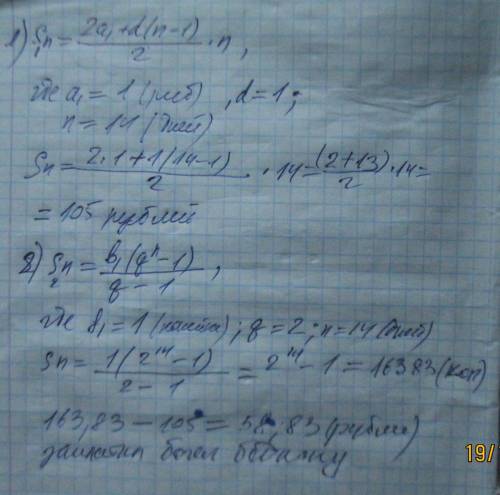 1) Sn = (2a₁+d(n-1))/2 · n,
где a₁ = 1 (руб), d=1;
n = 14 (дней)
Sn = (2·1+1(14-1))/2 · 14 = (2+13)/2 · 14 =
= 105 рублей
2) Sn = b₁(qⁿ-1)/(q-1),
где b₁ = 1 (копейка); q = 2; n=14 (дней)
Sn = 1(2¹⁴-1)/(2-1) = 2¹⁴-1 = 16383 (коп)
163,83 - 105 = 58,83 (рубля)
заплатил богач
19/